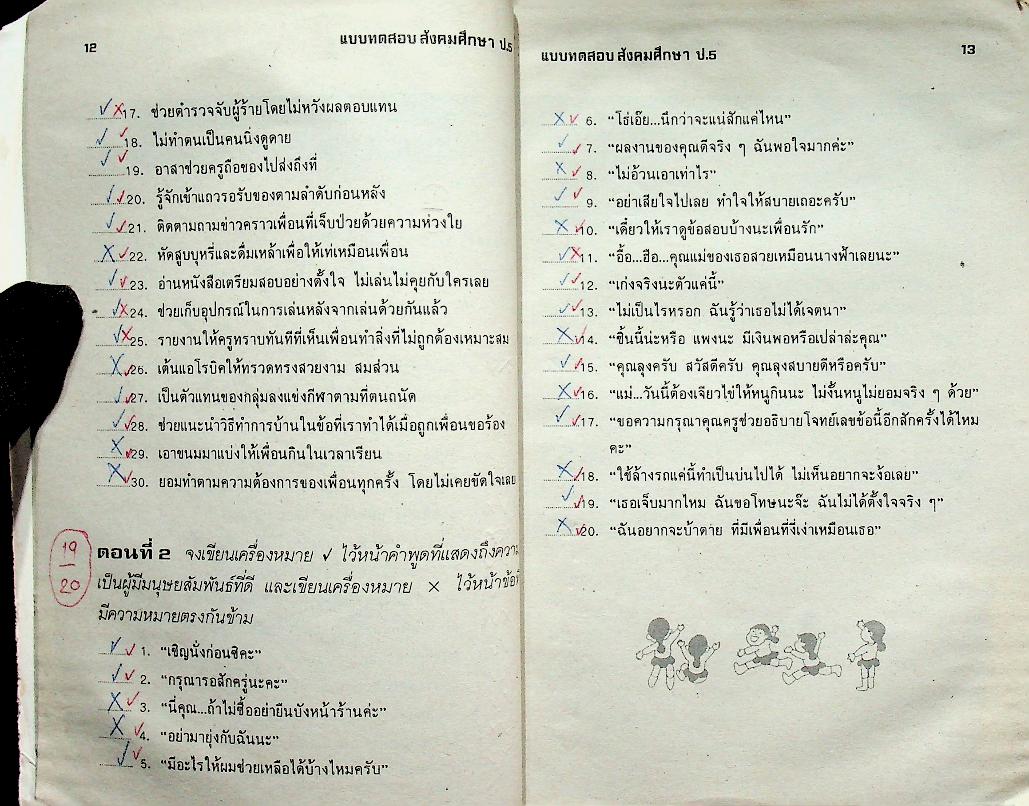 12
แบบทดสอบ สังคมศึกษา ป.5
✓ ✗ 17. ช่วยตำรวจจับผู้ร้ายโดยไม่หวังผลตอบแทน
✓ ✓ 18. ไม่ทำตนเป็นคนนิ่งดูดาย
✓ ✓ 19. อาสาช่วยครูถือของไปส่งถึงที่
✓ ✓ 20. รู้จักเข้าแถวรอรับของตามลำดับก่อนหลัง
✓ ✓ 21. ติดตามถามข่าวคราวเพื่อนที่เจ็บป่วยด้วยความห่วงใย
✗ ✓ 22. หัดสูบบุหรี่และดื่มเหล้าเพื่อให้เท่เหมือนเพื่อน
✓ ✓ 23. อ่านหนังสือเตรียมสอบอย่างตั้งใจ ไม่เล่นไม่คุยกับใครเลย
✓ ✗ 24. ช่วยเก็บอุปกรณ์ในการเล่นหลังจากเล่นด้วยกันแล้ว
✓ ✗ 25. รายงานให้ครูทราบทันทีที่เห็นเพื่อนทำสิ่งที่ไม่ถูกต้องเหมาะสม
✗ ✓ 26. เต้นแอโรบิคให้ทรวดทรงสวยงาม สมส่วน
✓ ✓ 27. เป็นตัวแทนของกลุ่มลงแข่งกีฬาตามที่ตนถนัด
✓ ✓ 28. ช่วยแนะนำวิธีทำการบ้านในข้อที่เราทำได้เมื่อถูกเพื่อนขอร้อง
✗ ✓ 29. เอาขนมมาแบ่งให้เพื่อนกินในเวลาเรียน
✗ ✓ 30. ยอมทำตามความต้องการของเพื่อนทุกครั้ง โดยไม่เคยขัดใจเลย
19
20
ตอนที่ 2 จงเขียนเครื่องหมาย ✓ ไว้หน้าคำพูดที่แสดงถึงความ
เป็นผู้มีมนุษยสัมพันธ์ที่ดี และเขียนเครื่องหมาย × ไว้หน้าข้อที่
มีความหมายตรงกันข้าม
✓ ✓ 1. “เชิญนั่งก่อนซิคะ”
✓ ✓ 2. “กรุณารอสักครู่นะคะ”
✗ ✓ 3. “นี่คุณ...ถ้าไม่ซื้ออย่ายืนบังหน้าร้านค่ะ”
✗ ✓ 4. “อย่ามายุ่งกับฉันนะ”
✓ ✓ 5. “มีอะไรให้ผมช่วยเหลือได้บ้างไหมครับ”
แบบทดสอบ สังคมศึกษา ป.5
13
✗ ✓ 6. “โธ่เอ๊ย...นึกว่าจะแน่สักแค่ไหน”
✓ ✓ 7. “ผลงานของคุณดีจริง ๆ ฉันพอใจมากค่ะ”
✗ ✓ 8. “ไม่อ้วนเอาเท่าไร”
✓ ✓ 9. “อย่าเสียใจไปเลย ทำใจให้สบายเถอะครับ”
✗ ✓ 10. “เดี๋ยวให้เราดูข้อสอบบ้างนะเพื่อนรัก”
✓ ✗ 11. “อื้อ...ฮือ...คุณแม่ของเธอสวยเหมือนนางฟ้าเลยนะ”
✓ ✓ 12. “เก่งจริงนะตัวแค่นี้”
✓ ✓ 13. “ไม่เป็นไรหรอก ฉันรู้ว่าเธอไม่ได้เจตนา”
✗ ✓ 14. “ชิ้นนี้น่ะหรือ แพงนะ มีเงินพอหรือเปล่าล่ะคุณ”
✓ ✓ 15. “คุณลุงครับ สวัสดีครับ คุณลุงสบายดีหรือครับ”
✗ ✓ 16. “แม่...วันนี้ต้องเจียวไข่ให้หนูกินนะ ไม่งั้นหนูไม่ยอมจริง ๆ ด้วย”
✓ ✓ 17. “ขอความกรุณาคุณครูช่วยอธิบายโจทย์เลขข้อนี้อีกสักครั้งได้ไหม
คะ”
✗ ✓ 18. “ใช้ล้างรถแค่นี้ทำเป็นบ่นไปได้ ไม่เห็นอยากจะง้อเลย”
✓ ✓ 19. “เธอเจ็บมากไหม ฉันขอโทษนะจ๊ะ ฉันไม่ได้ตั้งใจจริง ๆ”
✗ ✓ 20. “ฉันอยากจะบ้าตาย ที่มีเพื่อนที่งี่เง่าเหมือนเธอ”